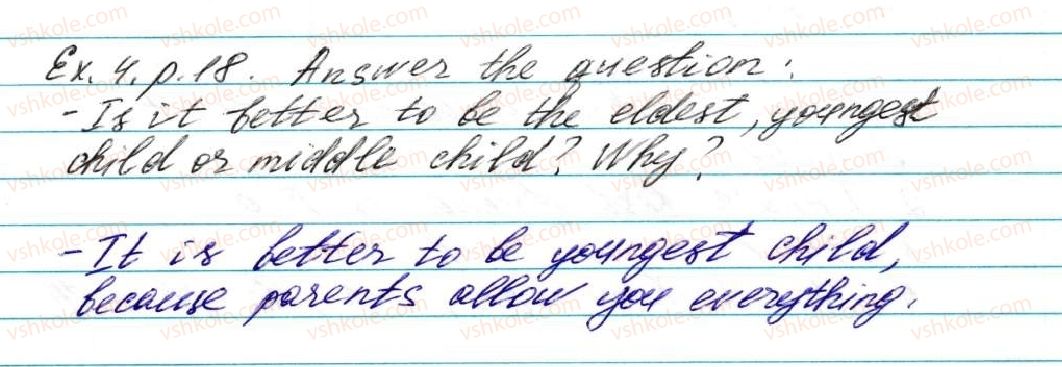 Ex. 4. p. 18. Answer the question:
- Is it better to be the eldest, youngest
child or middle child? Why?
- It is better to be youngest child,
because parents allow you everything.